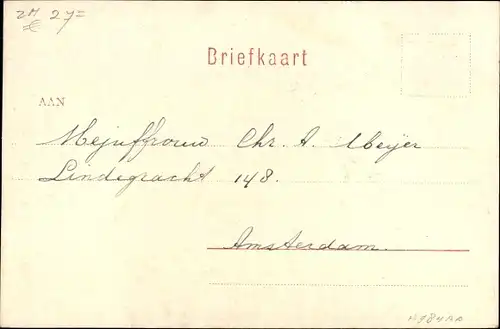 ZM 27=
€
Briefkaart
AAN
Mejuffrouw Chr. A. Meyer
Lindegracht 148.
Amsterdam.